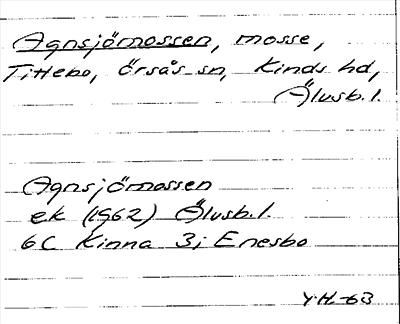 Agnsjömossen, mosse,
Tittebo, Örsås sn, Kinds hd,
Älvsb. l.
Agnsjömossen
ek (1962) Älvsb. l.
6C Kinna 3i Enesbo
Y.H.-63